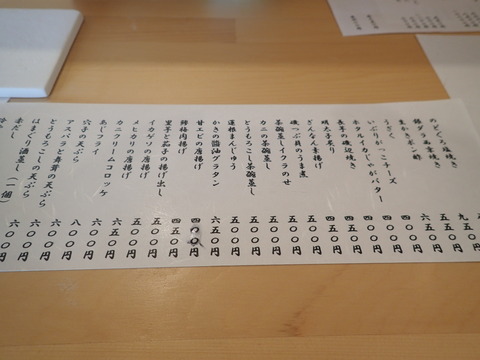 のどくろ塩焼き
銀ダラ西京焼き
生かきポン酢
うざく
いぶりがっこチーズ
ホタルイカじゃがバター
長芋の磯辺焼き
明太子炙り
ぎんなん素揚げ
磯つぶ貝のうま煮
茶碗蒸しイクラのせ
カニの茶碗蒸し
とうもろこし茶碗蒸し
蓮根まんじゅう
かきの醤油グラタン
甘エビの唐揚げ
梅肉揚げ
里芋と茄子の揚げ出し
イカゲソの唐揚げ
メヒカリの唐揚げ
カニクリームコロッケ
あじフライ
穴子の天ぷら
アスパラの天ぷら
とうもろこしと舞茸の天ぷら
はまぐり酒蒸し(一個)
赤だし
九五〇円
五五〇円
六五〇円
四〇〇円
四〇〇円
四〇〇円
四五〇円
四五〇円
五〇〇円
五〇〇円
五〇〇円
五〇〇円
五〇〇円
六五〇円
四〇〇円
四五〇円
五〇〇円
五〇〇円
六五〇円
六〇〇円
八〇〇円
六〇〇円
六〇〇円
六〇〇円